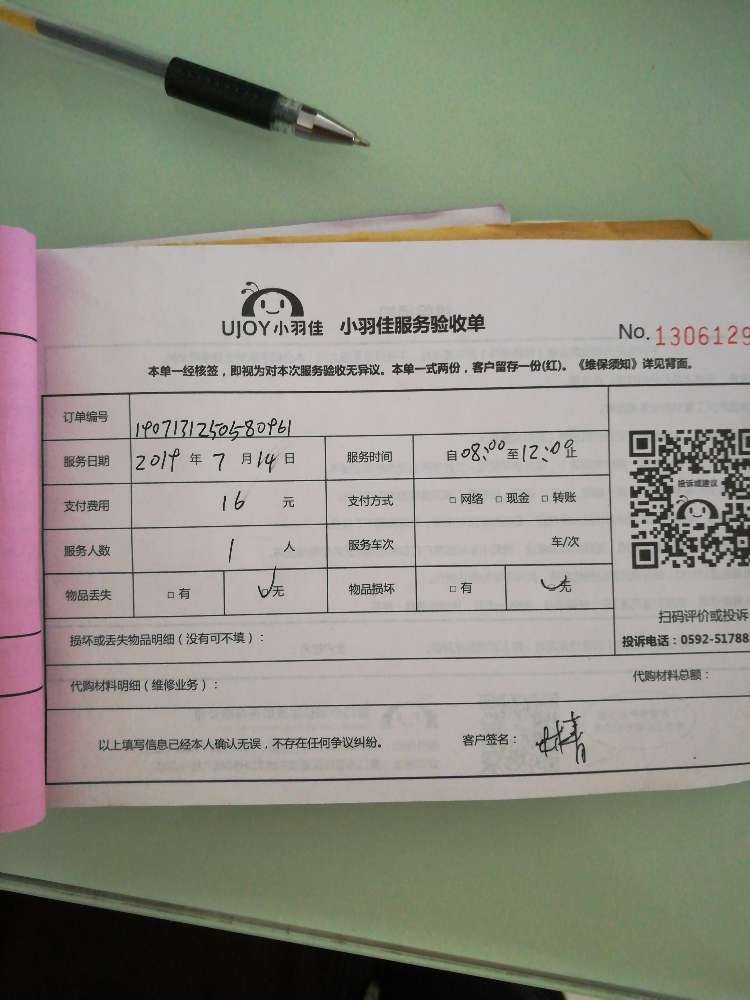 UJOY小羽佳 小羽佳服务验收单
No.1306129
本单一经核签，即视为对本次服务验收无异议。本单一式两份，客户留存一份(红)。《维保须知》详见背面。
订单编号 1907131250580961
服务日期 2019 年 7 月 14 日 服务时间 自08:00至12:00止
支付费用 16 元 支付方式 □网络 □现金 □转账
服务人数 1 人 服务车次 车/次
物品丢失 □有 □无 物品损坏 □有 □无
投诉或建议
扫码评价或投诉
投诉电话：0592-51788
损坏或丢失物品明细（没有可不填）：
代购材料明细（维修业务）： 代购材料总额：
以上填写信息已经本人确认无误，不存在任何争议纠纷。 客户签名：